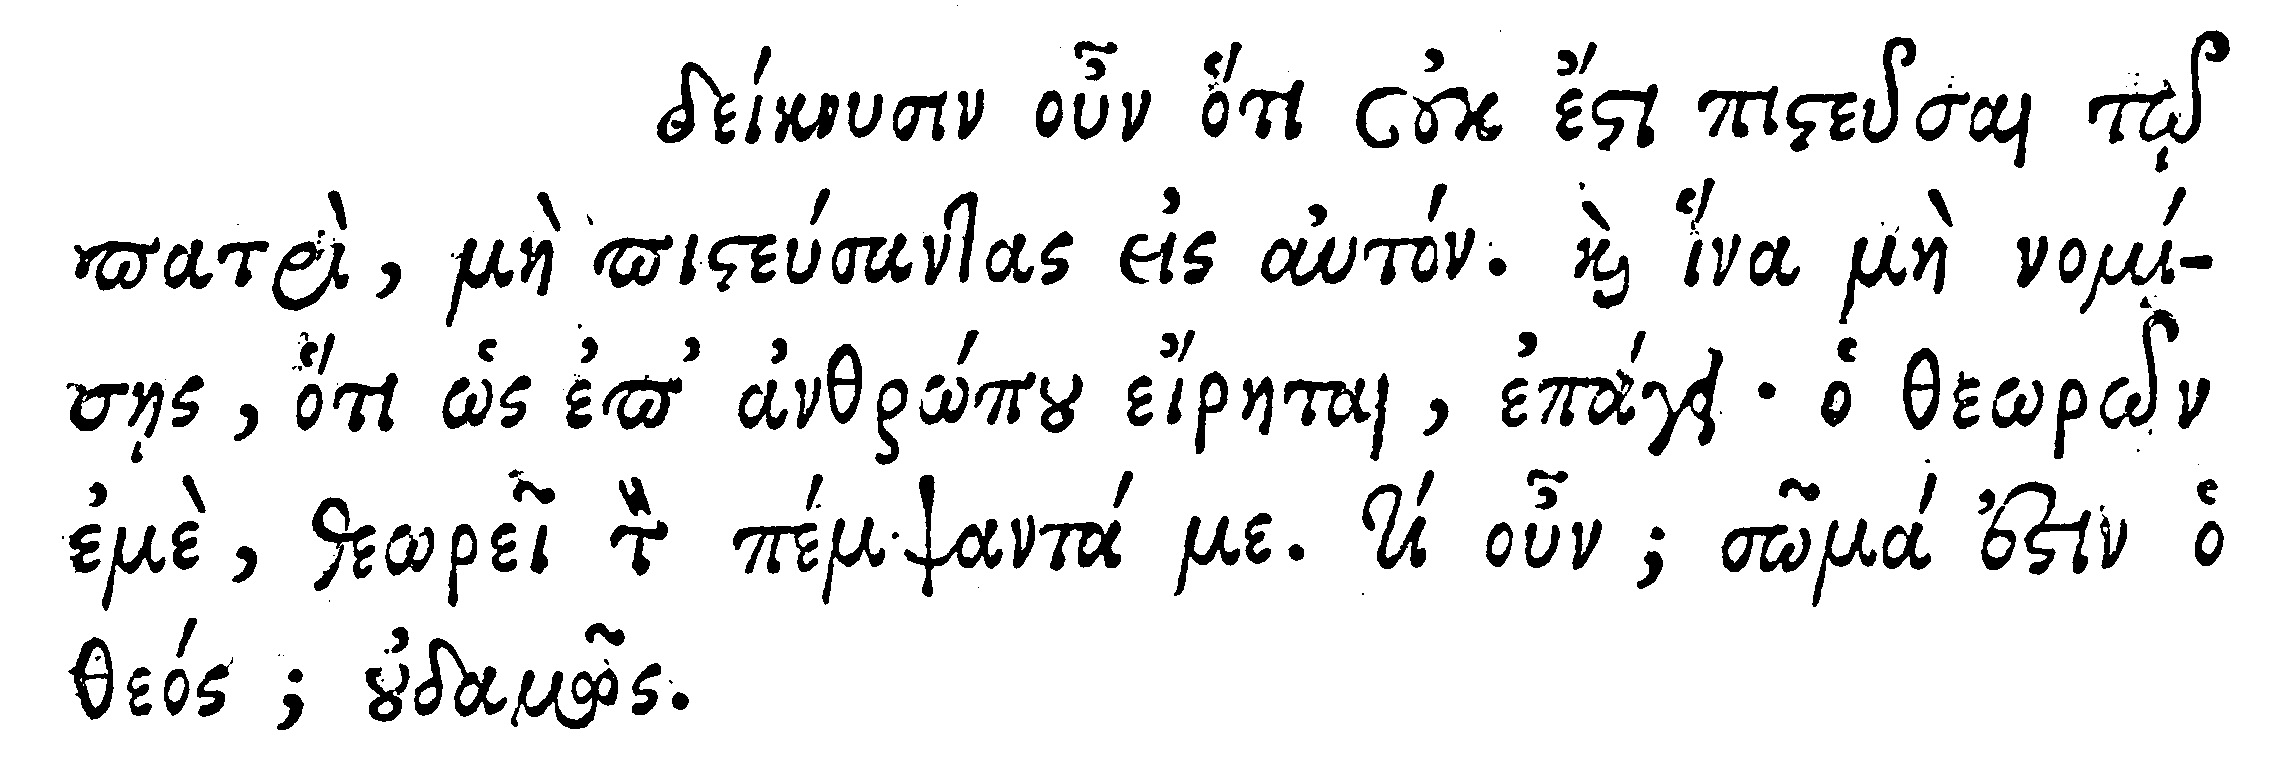 δείκνυσιν οὖν ὅτι οὐκ ἔστι πιστεῦσαι τῷ
πατρὶ, μὴ πιστεύσαντας εἰς αὐτόν. καὶ ἵνα μὴ νομί-
σῃς, ὅτι ὡς ἐπ’ ἀνθρώπου εἴρηται, ἐπάγει · ὁ θεωρῶν
ἐμὲ, θεωρεῖ τὸν πέμψαντά με. τί οὖν ; σῶμά ἐστιν ὁ
θεός ; οὐδαμῶς.